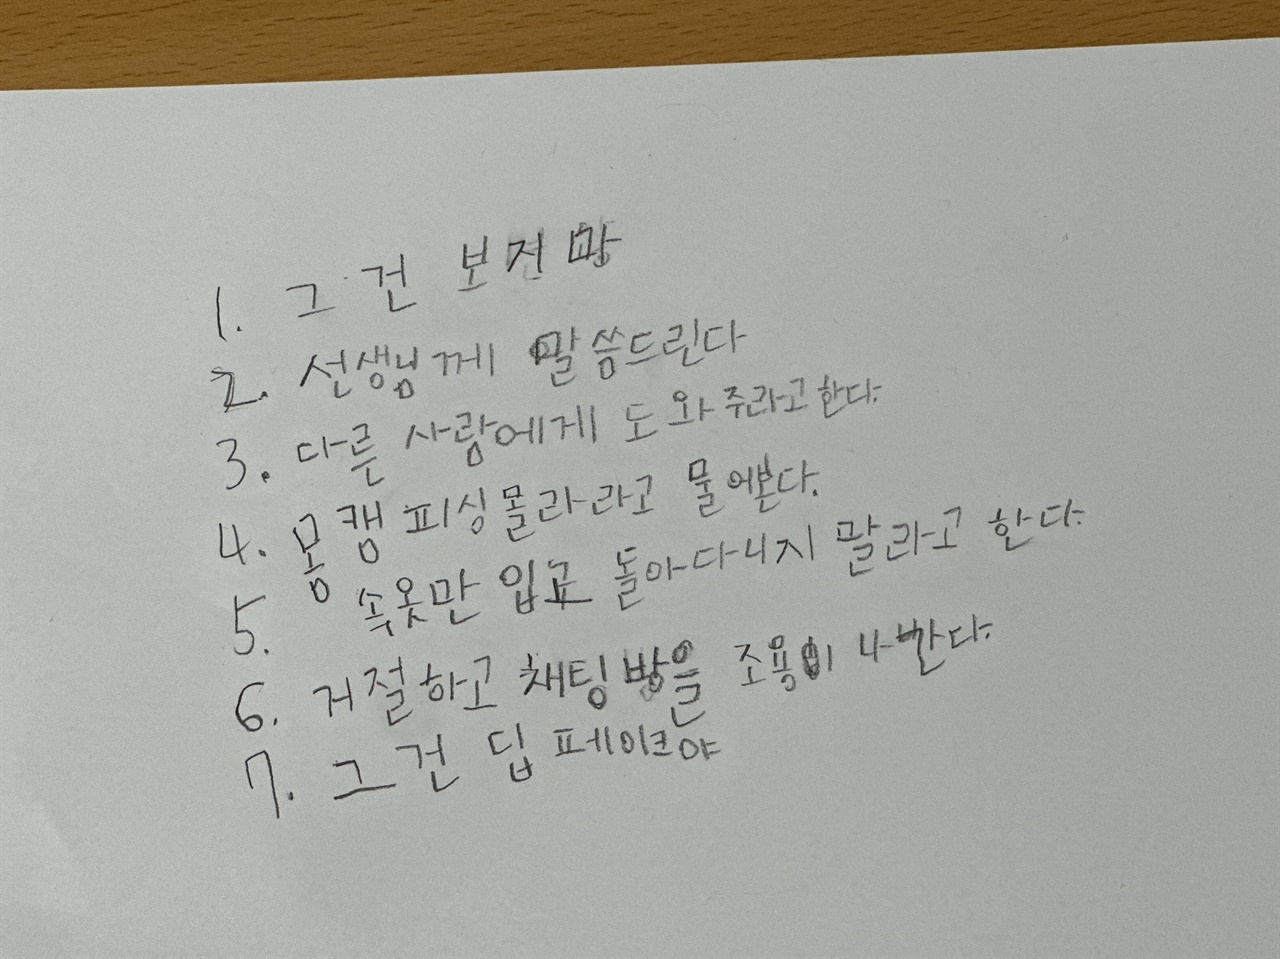 1. 그건 보지마
2. 선생님께 말씀드린다
3. 다른 사람에게 도와주라고한다.
4. 몸캠피싱몰라라고 물어본다.
5. 속옷만 입고 돌아다니지 말라고 한다.
6. 거절하고 채팅방을 조용이 나간다.
7. 그건 딥페이크야